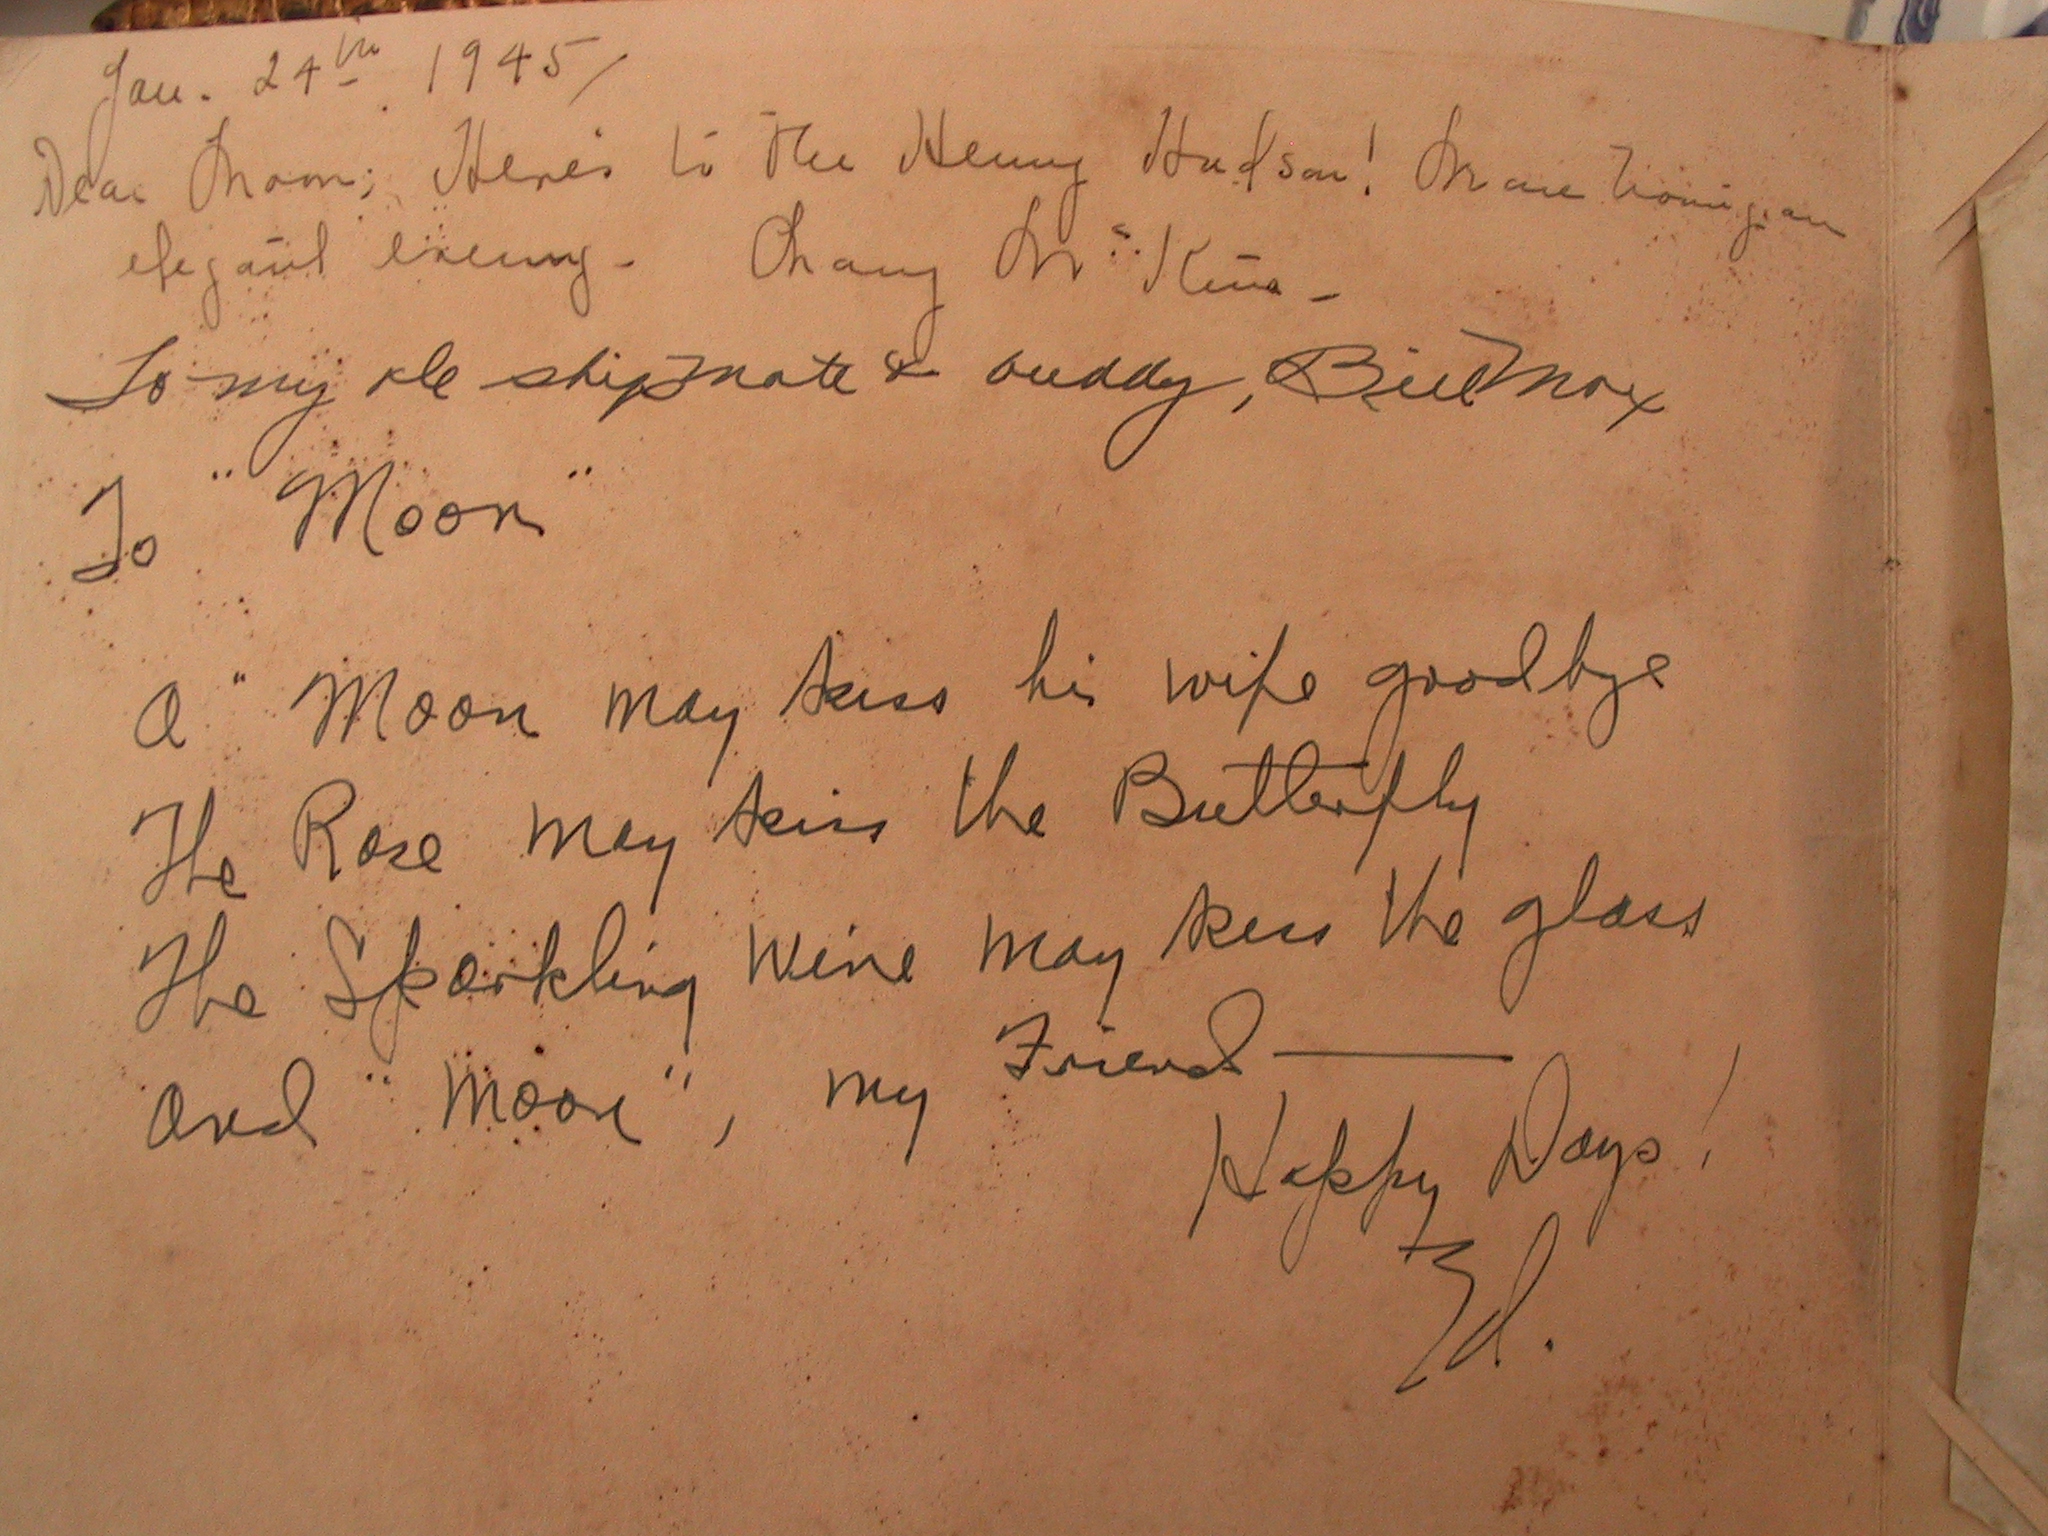 Jan. 24th 1945
Dear Moon; Here's to the Henry Hudson!
elegant evening. Mc
To my ole shipmate & buddy, Bill
To "Moon"
A "Moon may kiss his wife goodbye
The Rose may kiss the Butterfly
The Sparkling Wine may kiss the glass
And "Moon", my Friend —
Happy Days!
Ed.